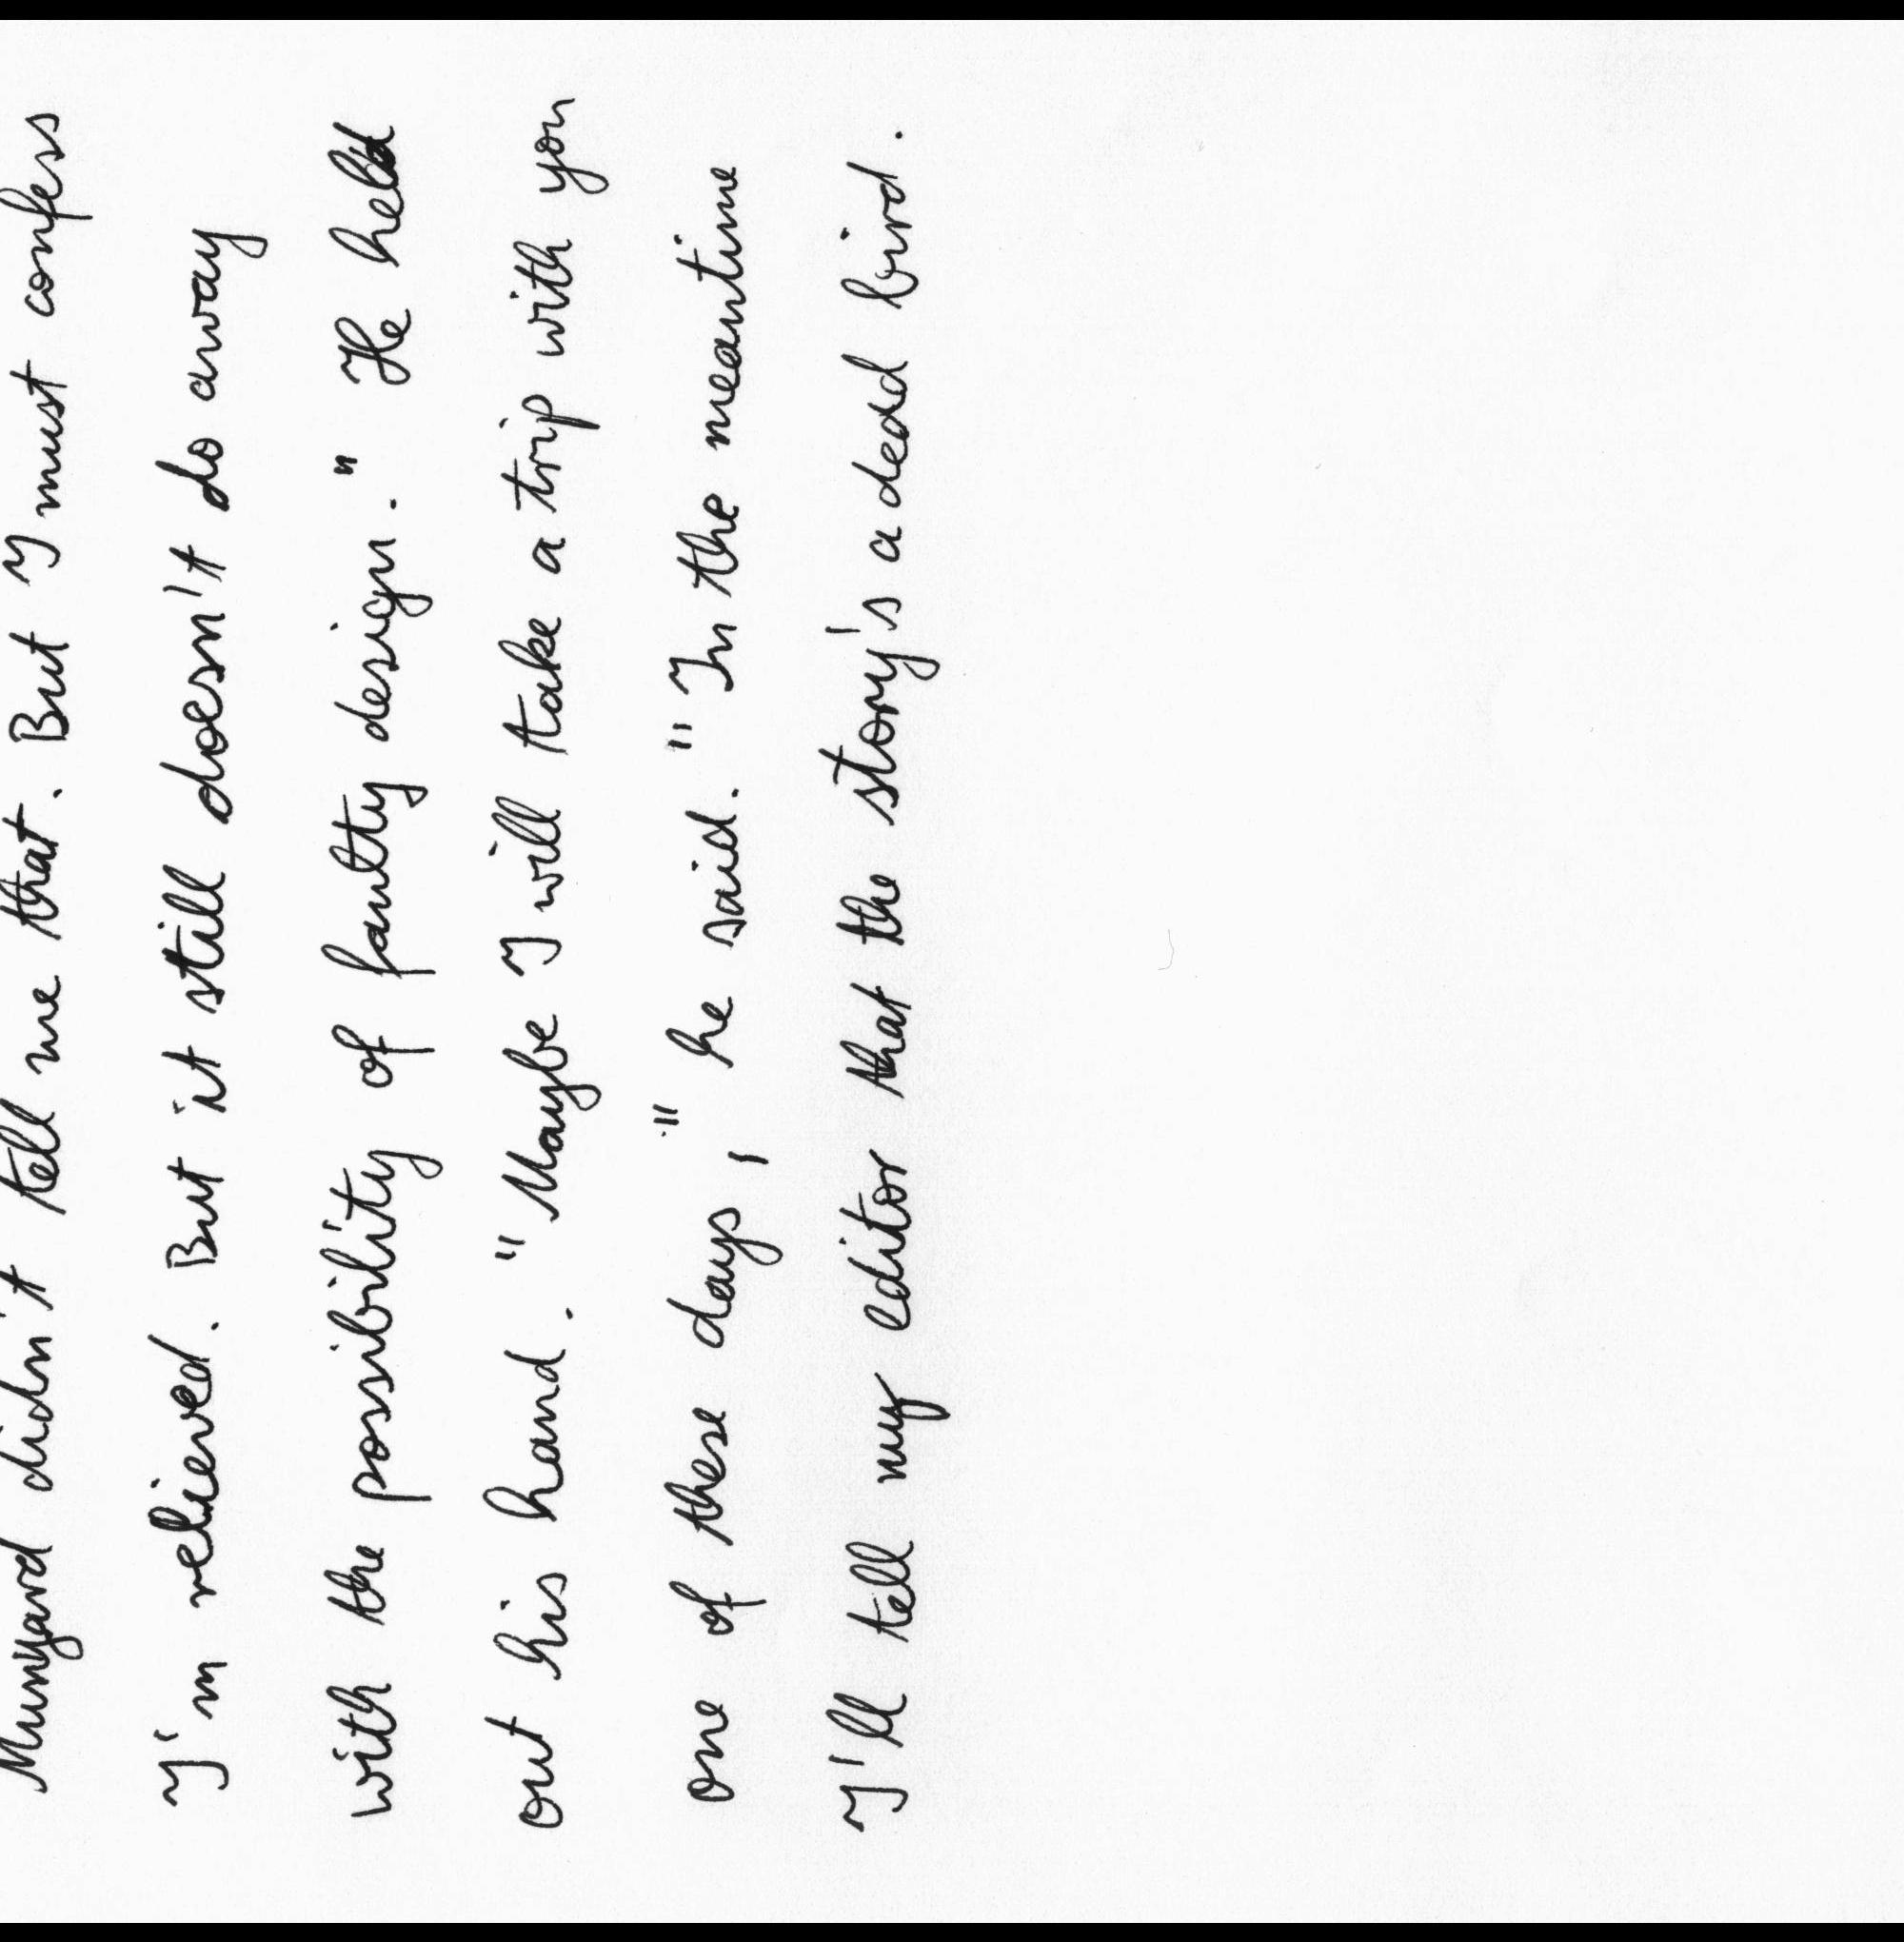 Munyard didn't tell me that. But I must confess
I'm relieved. But it still doesn't do away
with the possibility of faulty design." He held
out his hand. "Maybe I will take a trip with you
one of these days," he said. "In the meantime
I'll tell my editor that the story's a dead bird.